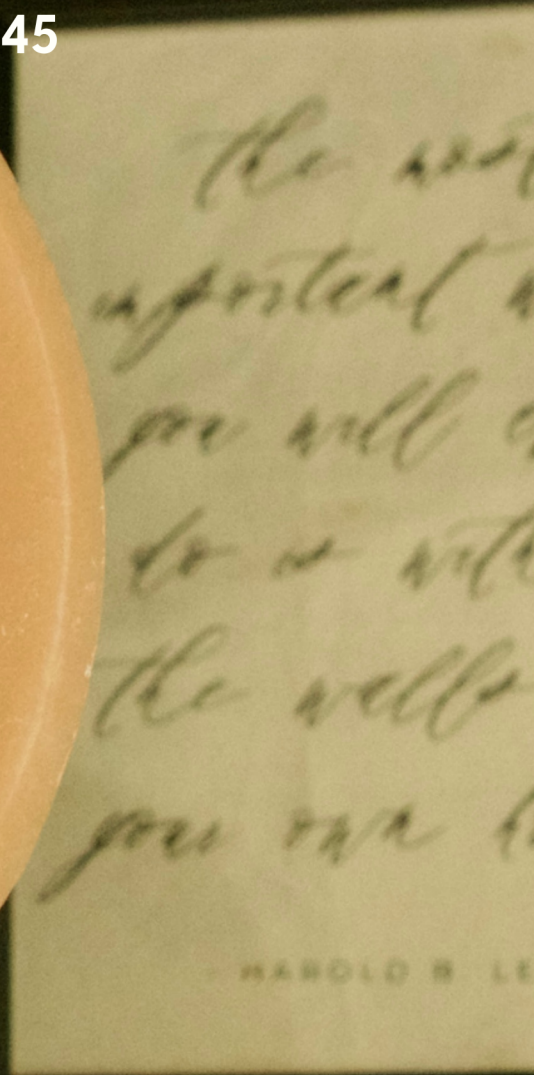 45
the most
important w
you will e
do is with
the walls
your own h
HAROLD B. LE